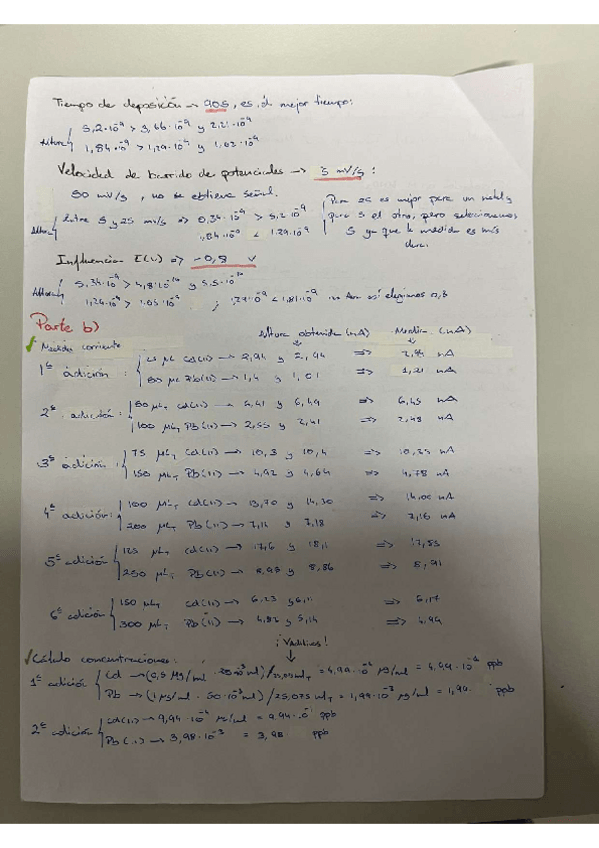 Tiempo de deposición → 90s, es el mejor tiempo:
Altura { 5,2·10⁻⁹ > 3,66·10⁻⁹ y 2,21·10⁻⁹
1,84·10⁻⁹ > 1,29·10⁻⁹ y 1,02·10⁻⁹
Velocidad de barrido de potenciales → 5 mV/s :
50 mV/s , no se obtiene señal.
Altura { Entre 5 y 25 mV/s => 0,34·10⁻⁹ > 5,2·10⁻⁹
1,29·10⁻⁹
Para 25 es mejor para un metal y
para 5 el otro, pero seleccionamos
5 ya que la medida es más
Influencia E(V) => -0,8 V
Altura { 5,34·10⁻⁹ > 4,8·10⁻¹⁰ y 5.5·10⁻¹⁰
1,29·10⁻⁹ > 1.05·10⁻⁹ ; 1,29·10⁻⁹ < 1,81·10⁻⁹ aun así elegimos 0,8
Parte b)
✓ Medidas corriente Altura obtenida (nA) Media (nA)
1ª adición : { 25 µL Cd(II) → 2,94 y 2,94 => 2,94 nA
50 µL Pb(II) → 1,4 y 1,01 => 1,21 nA
2ª adición : { 50 µL Cd(II) → 6,41 y 6,49 => 6,45 nA
100 µL Pb(II) → 2,55 y 2,41 => 2,48 nA
3ª adición : { 75 µL Cd(II) → 10,3 y 10,4 => 10,35 nA
150 µL Pb(II) → 4,92 y 4,64 => 4,78 nA
4ª adición : { 100 µL Cd(II) → 13,70 y 14,30 => 14,00 nA
200 µL Pb(II) → 7,14 y 7,18 => 7,16 nA
5ª adición { 125 µL Cd(II) → 17,6 y 18,1 => 17,85
250 µL Pb(II) → 8,95 y 8,86 => 8,91
6ª adición { 150 µL Cd(II) → 6.23 y 6,11 => 6,17
300 µL Pb(II) → 4,82 y 5,14 => 4,94
✓ Cálculo concentraciones:
1ª adición { Cd → (0,5 µg/ml · 25·10⁻³ ml) / 25,075 ml = 4,99·10⁻⁴ µg/ml = 4,99·10⁻¹ ppb
Pb → (1 µg/ml · 50·10⁻³ ml) / 25,075 ml = 1,99·10⁻³ µg/ml = 1,99 ppb
2ª adición { Cd(II) → 9,94·10⁻⁴ µg/ml = 9,94·10⁻¹ ppb
Pb(II) → 3,98·10⁻³ = 3,98 ppb